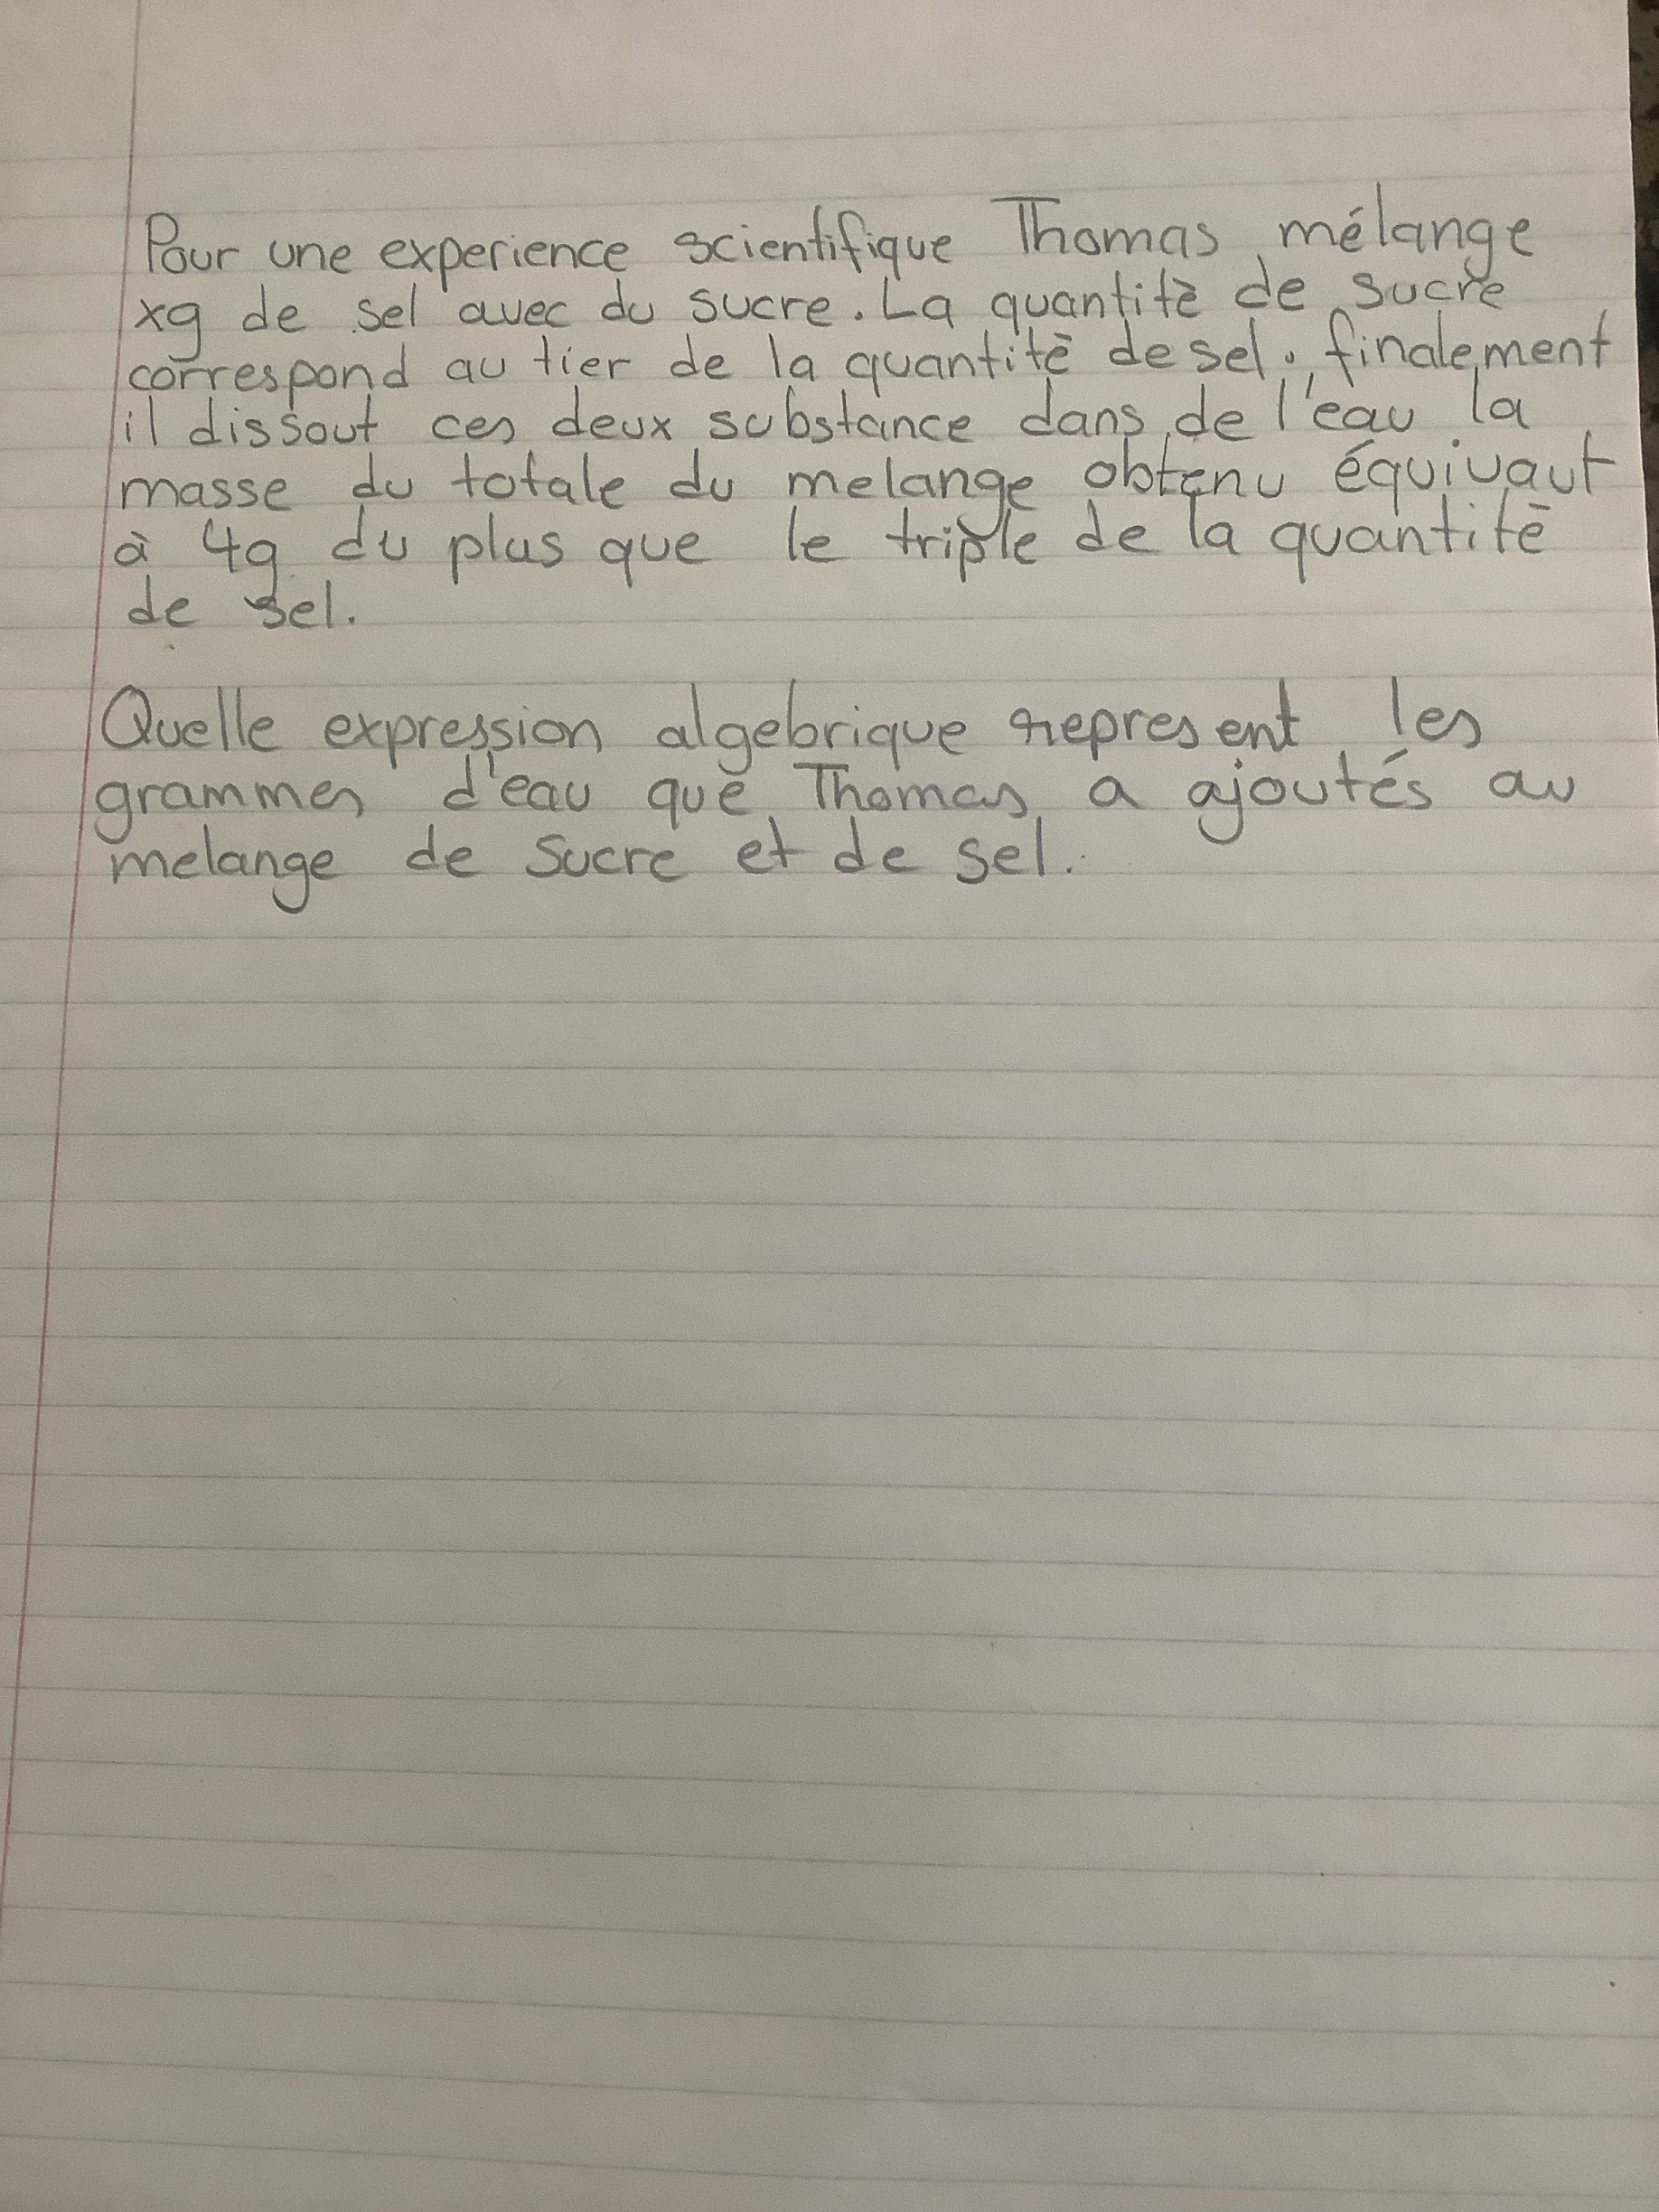 Pour une experience scientifique Thomas mélange
xg de sel avec du sucre. La quantitè de sucre
correspond au tier de la quantitè de sel., finalement
il dissout ces deux substance dans de l'eau la
masse du totale du melange obtenu équivaut
à 4g du plus que le triple de la quantitè
de sel.
Quelle expression algebrique represent les
grammes d'eau que Thomas a ajoutés au
melange de sucre et de sel.